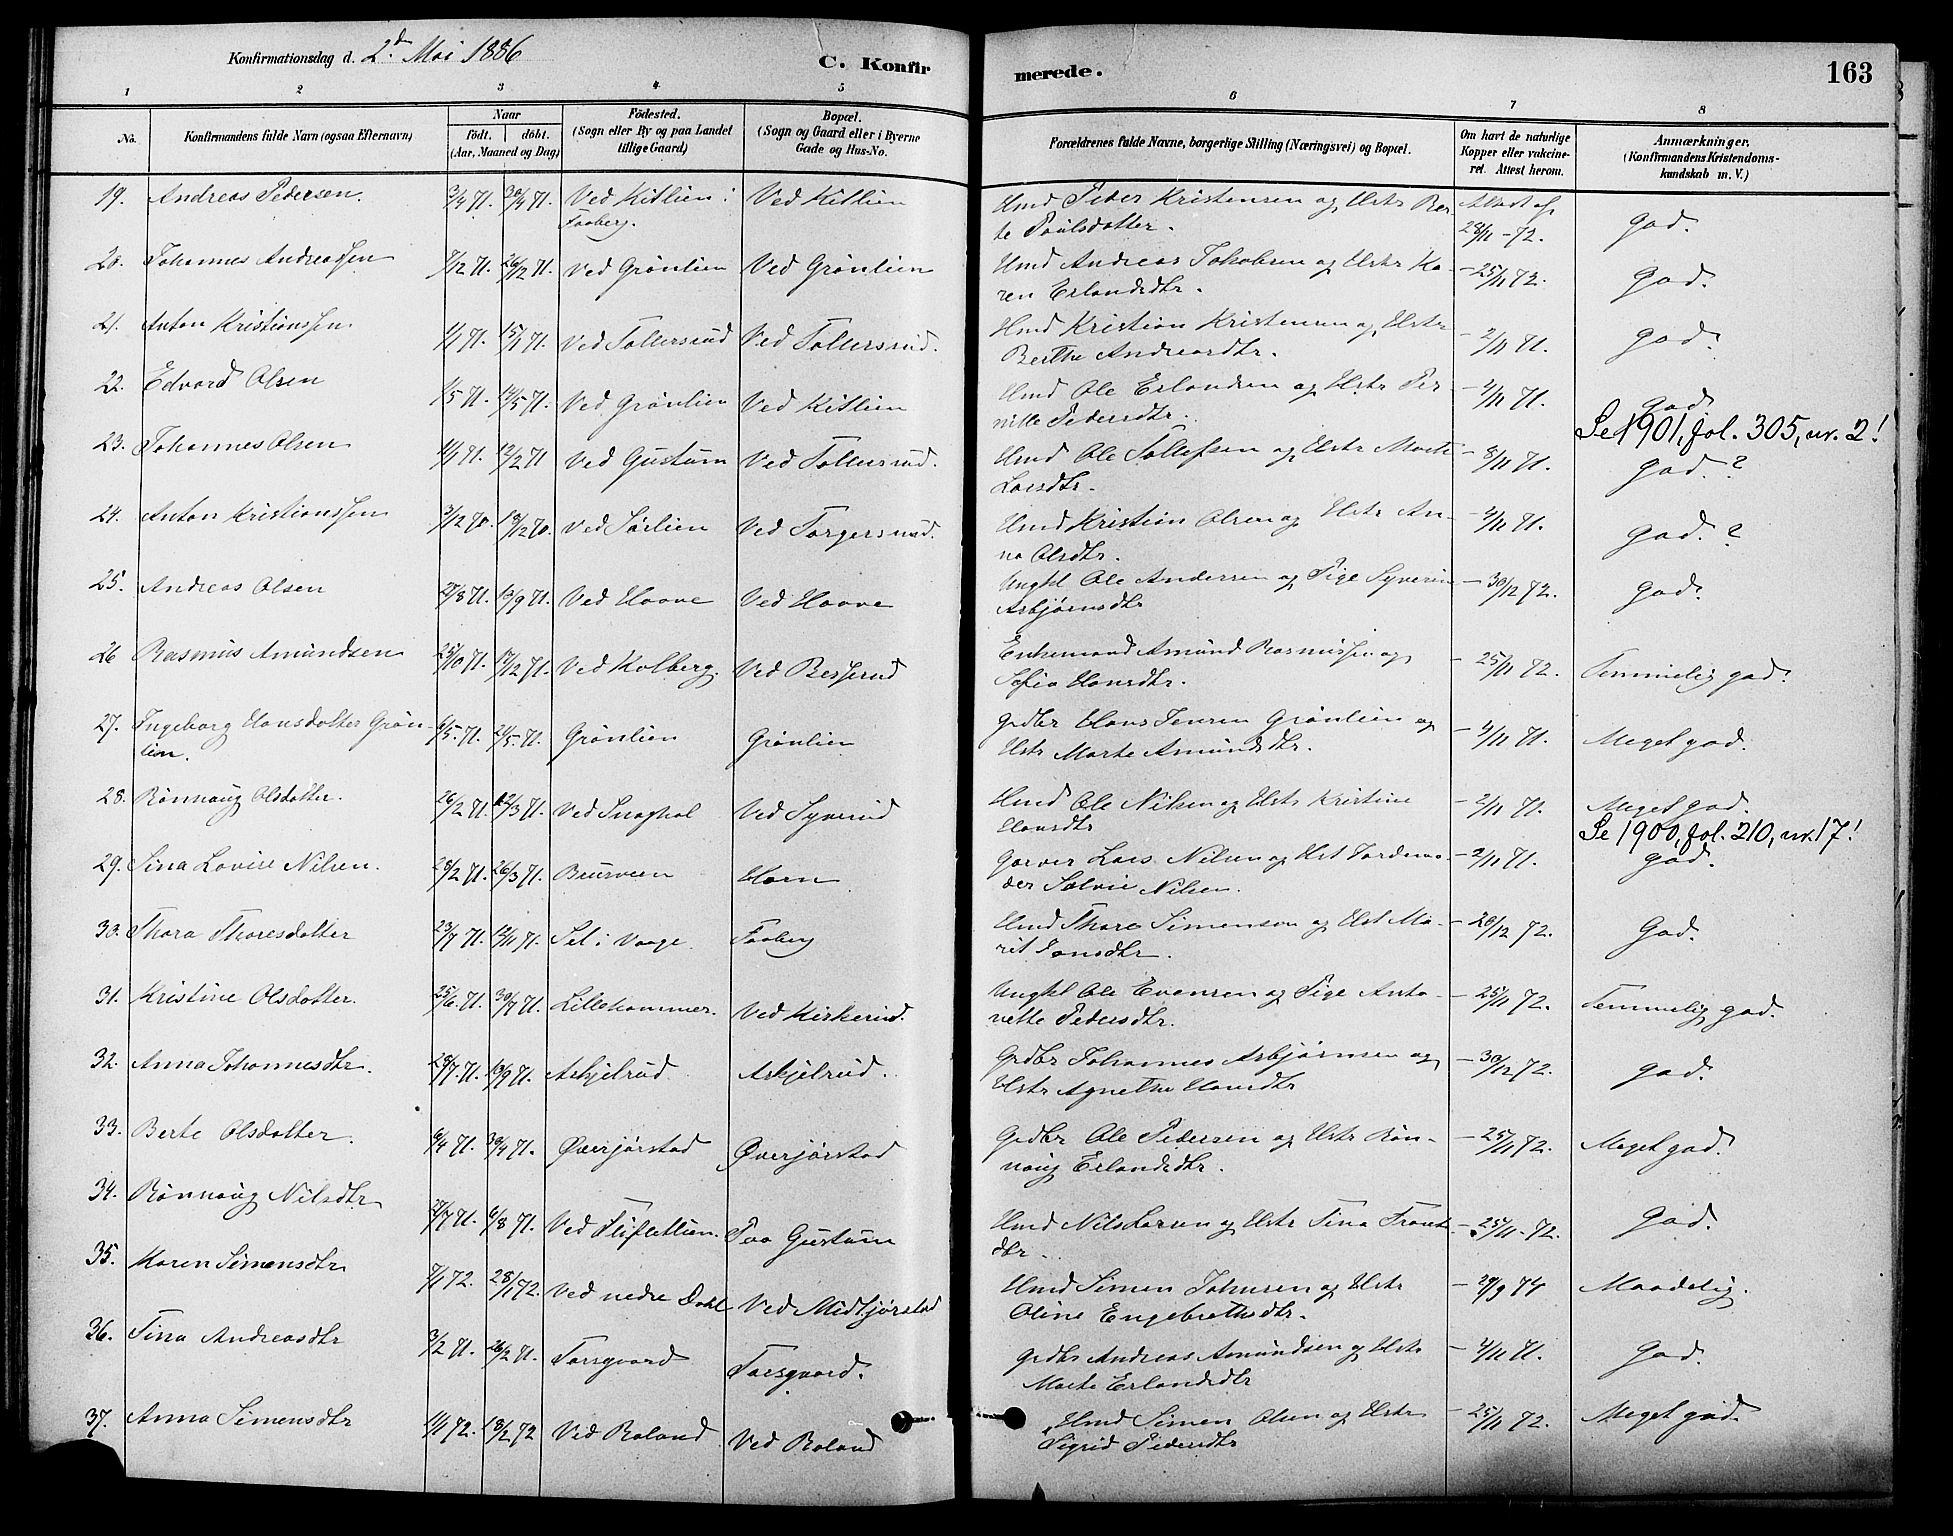 Konfirmationsdag d. 2d Mai 1886
C. Konfirmerede.
163
1 2 3 4 5 6 7 8
No. Konfirmandens fulde Navn (ogsaa Efternavn) Naar födt. döbt. (Aar, Maaned og Dag) Födested. (Sogn eller By og paa Landet tillige Gaard) Bopæl. (Sogn og Gaard eller i Byerne Gade og Hus-No. Forældrenes fulde Navne, borgerlige Stilling (Næringsvei) og Bopæl. Om havt de naturlige Kopper eller vakcineret. Attest herom. Anmærkninger. (Konfirmandens Kristendomskundskab m. V.)
19. Andreas Pedersen. 3/4 71. 30/4 71. Ved Kitlien i Ved Kitlien Hmd Peder Kristensen og Hstr Ber- Attest af
Faaberg. te Poulsdotter. 28/11 - 72. God.
20. Johannes Andreassen 7/12 71. 26/12 71. Ved Grönlien Ved Grönlien Hmd Andreas Jakobsen og Hstr Ka-
ren Erlandsdtr. - 25/11 72. God.
21. Anton Kristianssen 1/1 71. 15/1 71. Ved Tollersrud Ved Tollersrud. Hmd Kristian Kristensen og Hstr
Berthe Andreasdtr. - 2/11 71. God.
22. Edvard Olsen 1/5 71. 14/5 71. Ved Grönlien Ved Kitlien Hmd Ole Erlandsen og Hstr Per-
nille Pedersdtr. - 2/11 71. God
Se 1901, fol. 305, nr. 2!
23. Johannes Olsen 1/1 71. 12/2 71 Ved Gustum Ved Tollersrud. Hmd Ole Tollefsen og Hstr Marte
Larsdtr. - 8/11 71. God.?
24. Anton Kristianssen 3/12 70. 18/12 70. Ved Sörlien Ved Torgersrud. Hmd Kristian Olsen og Hstr An-
na Olsdtr. - 2/11 71. God.?
25. Andreas Olsen 13/9 71. Ved Haave Ved Haave Ungkl Ole Andersen og Pige Syverin
Asbjörnsdtr - 30/12 72. God.
26 Rasmus Amundsen 25/10 71. 17/12 71. Ved Kolberg. Ved Besserud Enkemand Amund Rasmussen og
Sofia Hansdtr. - 25/11 72. Temmelig god.
27. Ingeborg Hansdotter Grön- 6/5 71. 21/5 71. Grönlien Grönlien Grdbr Hans Jensen Grönlien og
lien. Hstr Marte Amundsdtr. - 2/11 71. Meget god.
28. Rönnaug Olsdotter. 26/2 71. 12/3 71. Ved Ved Syverud Hmd Ole Nilsen og Hstr Kristine
Hansdtr - 2/11 71. Meget god.
Se 1900, fol. 210, nr. 17!
29. Sina Lovise Nilsen. 28/2 71. 26/3 71. Bursveen Horn Garver Lars Nilsen og Hst Jordemo-
der Solvie Nilsen. - 2/11 71. God.
30. Thora Thoresdotter 23/7 71. 12/11 71. Sel i Vaage. Faaberg Hmd Thore Simenson og Hst Ma-
rit - 20/12 72. God.
31. Kristine Olsdotter. 25/6 71. 30/7 71. Lillehammer. Ved Kirkerud. Ungkl Ole Evensen og Pige Anto-
nette Pedersdtr. - 25/11 72. Temmelig god.
32. Anna Johannesdtr. 29/7 71. 13/9 71. Askjelrud Askjelrud. Grdbr Johannes Asbjörnsen og
Hstr Agnethe Hansdtr - 30/12 72. God.
33. Berte Olsdotter. 6/4 71. 30/4 71. Øverjørstad Øverjørstad Grdbr Ole Pedersen og Hstr Rön-
naug Erlandsdtr. - 25/11 72. Meget god.
34. Rönnaug Nilsdtr 6/8 71. Ved Paa Gustum Hmd Nils Larsen og Hstr Tina Trond-
dtr. - 25/11 - 72. God.
35. Karen Simensdtr 7/1 72. 28/1 72. Ved nedre Dahl Ved Midtjørstad Hmd Simen Johnsen og Hstr
Oline Engebrethsdtr. - 29/9 74 Maadelig.
36. Tina Andreasdtr 3/2 71. 26/2 71. Forsgaard Forsgaard. Grdbr Andreas Amundsen og Hstr
Marte Erlandsdtr - 2/11 71. God.
37. Anna Simensdtr 11/1 72. 18/2 72 Ved Roland Ved Roland Hmd Simen Olsen og Hstr
Sigrid Pedersdtr - 25/11 72. Meget god.